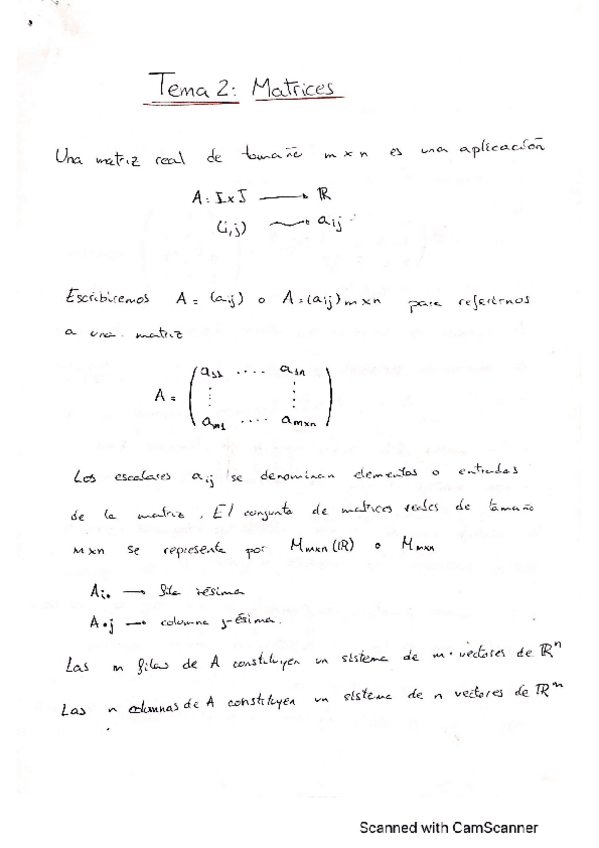 Tema 2: Matrices
Una matriz real de tamaño m x n es una aplicación
A: I x J ⟶ ℝ
(i,j) ⟿ aij
Escribiremos A = (aij) o A = (aij) m x n para referirnos
a una matriz
A = ( a11 .... a1n
⋮ ⋮
am1 .... amxn )
Los escalares aij se denominan elementos o entradas
de la matriz. El conjunto de matrices reales de tamaño
m x n se representa por Mmxn (ℝ) o Mmxn
Ai• ⟶ fila iésima
A•j ⟶ columna j-ésima.
Las m filas de A constituyen un sistema de m vectores de ℝⁿ
Las n columnas de A constituyen un sistema de n vectores de ℝᵐ
Scanned with CamScanner